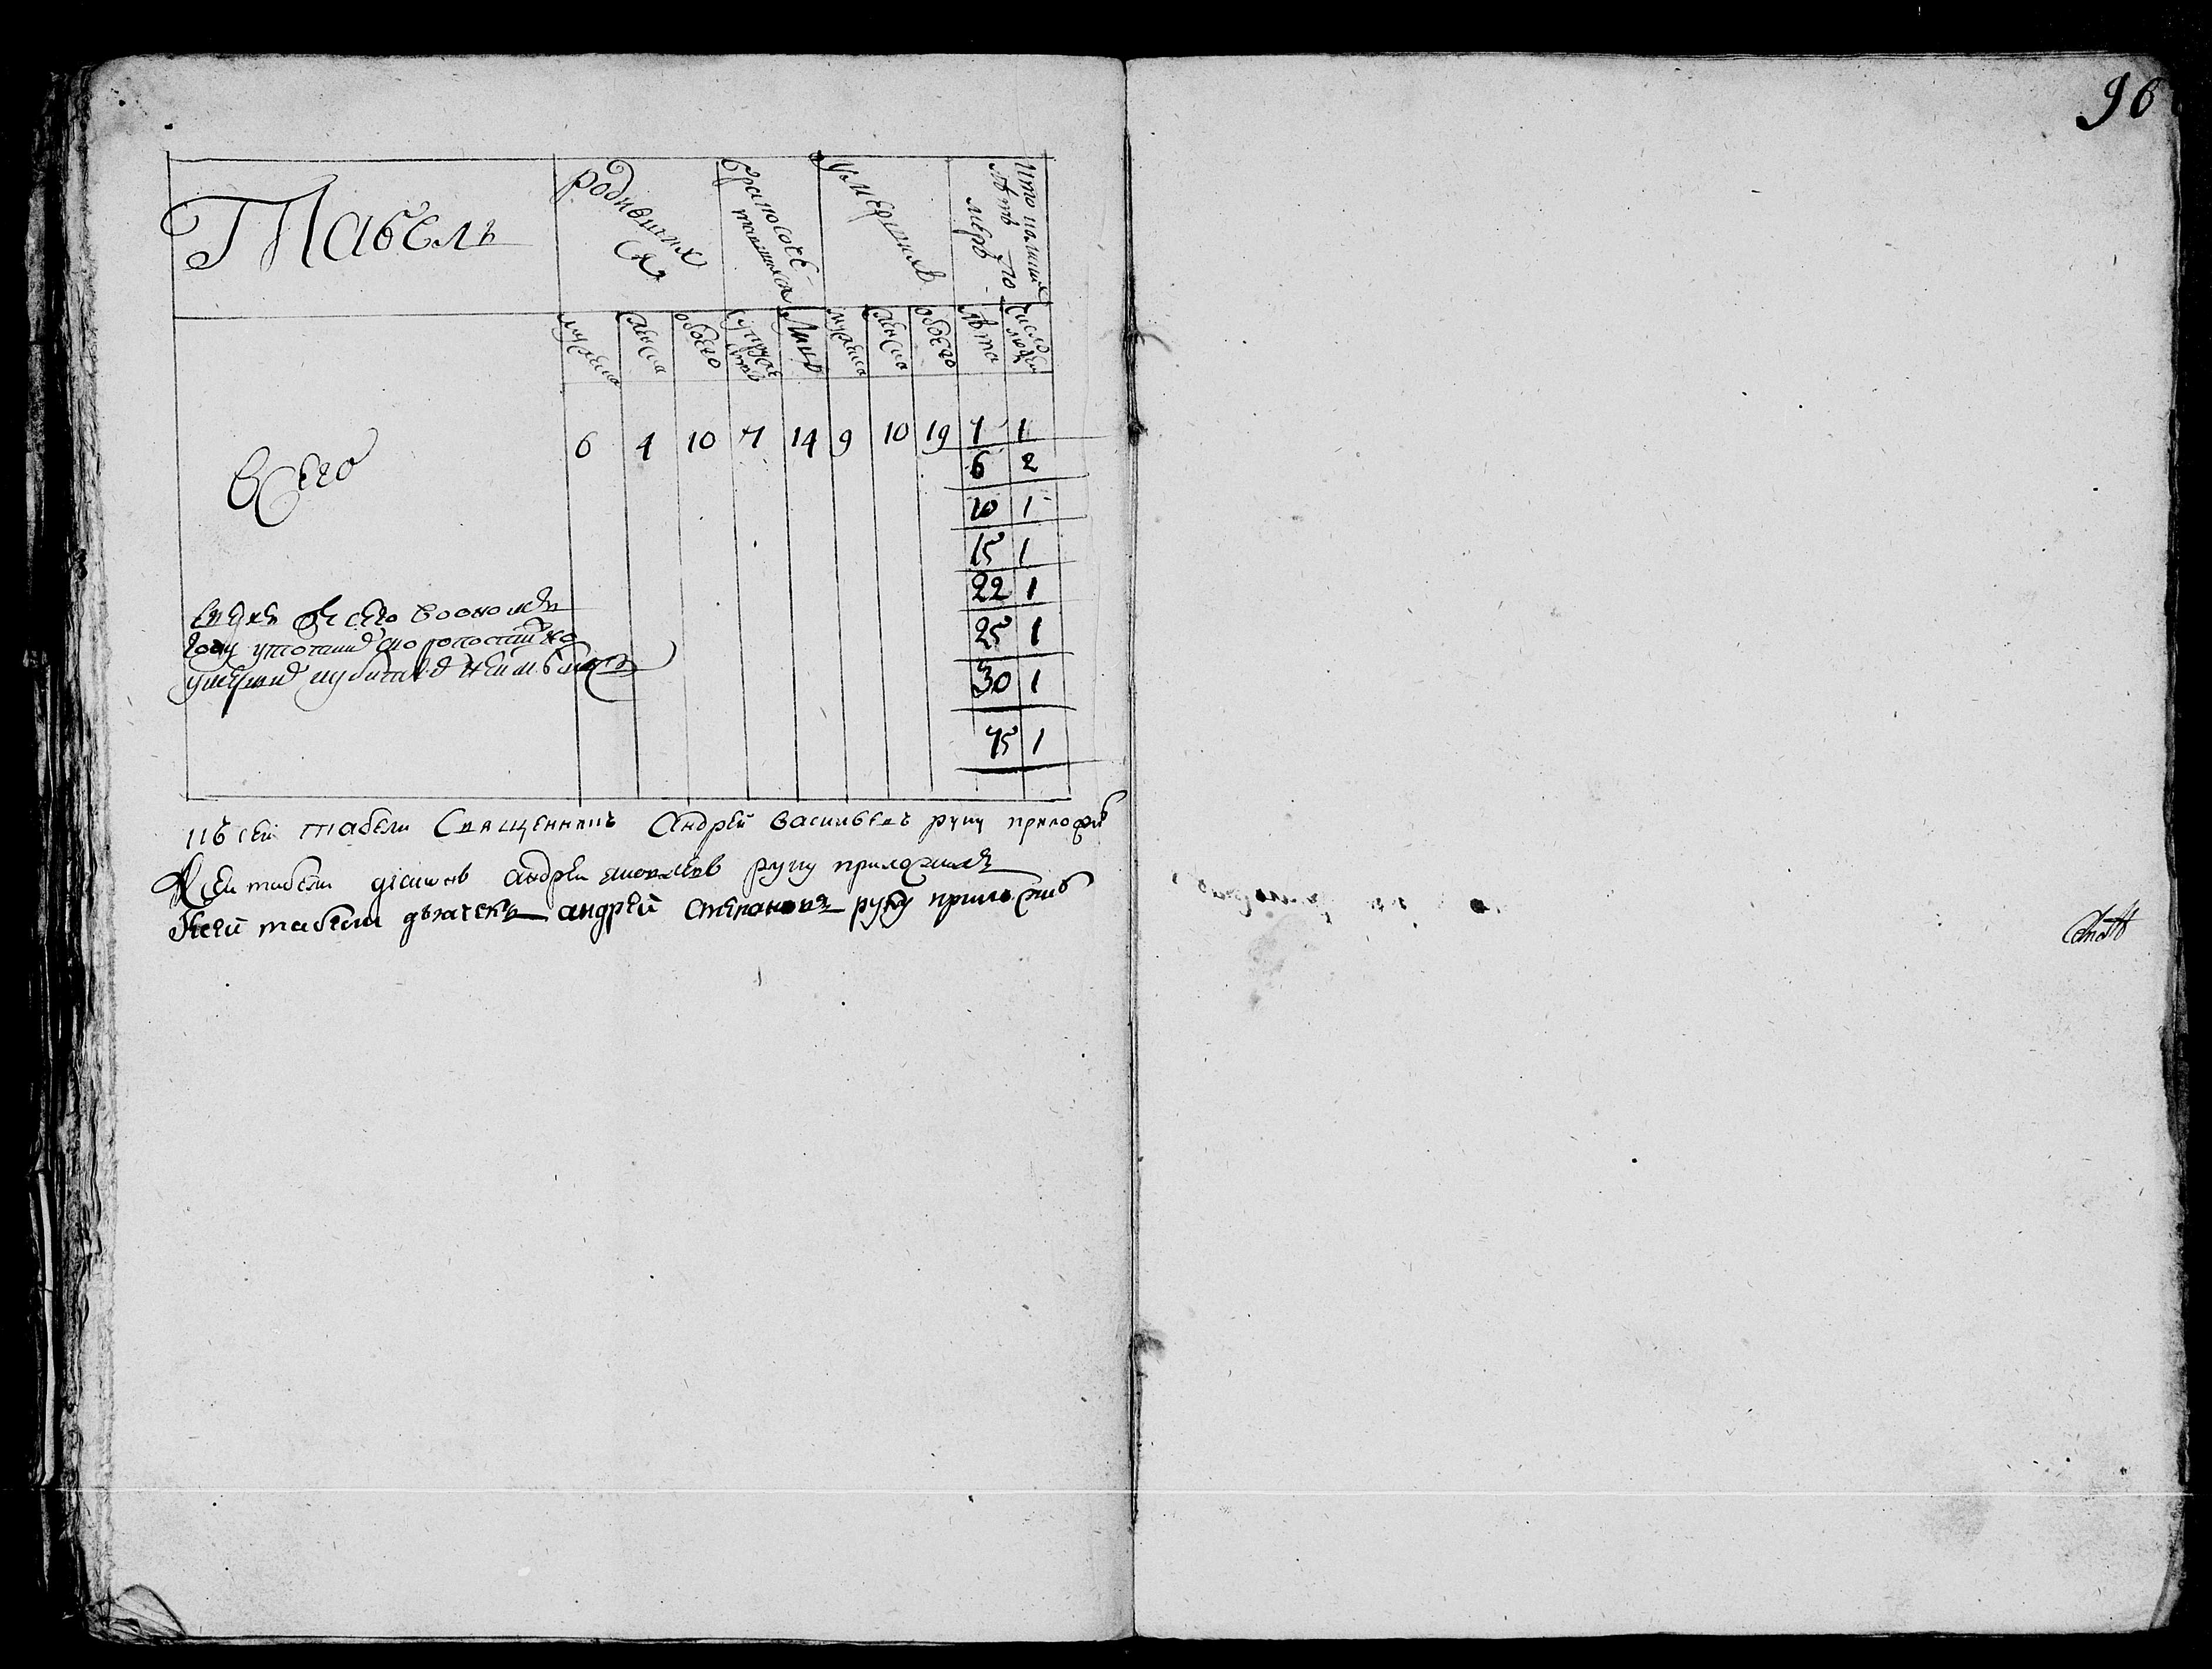 96
Табель
родивших
ся
бракосоче
тавшихся
умершихъ
кто коликих
лѣтъ по
меръ
мужеска
женска
обоего
супруже
ствъ
лицъ
мужеска
женска
обоего
лѣта
число
людей
Всего 6 4 10 7 14 9 10 19 1 1
6 2
10 1
15 1
22 1
25 1
30 1
75 1
сего
году
умерших убитых неимѣлось
къ сей табели Священникъ Андрей васильевъ руку приложилъ
К сей табели діаконъ андрей руку приложилъ
К сей табели дьячекъ андрей степановъ руку приложилъ